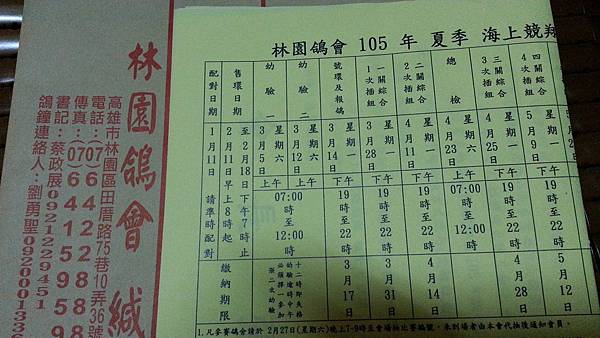 林園鴿會 緘
高雄市林園區田厝路75巷10弄36號
電話：(07)6422898
傳真：(07)6415959
書記：蔡政展0921229451
鴿鐘連絡人：劉勇聖
林園鴿會 105 年 夏季 海上競翔
配對日期 售環日期 幼驗一 幼驗二 號環及報鴿 一關綜合1次插組 二關綜合2次插組 總檢 三關綜合3次插組 四關綜合4次插組
1月11日 1月11日 至 2月18日 3月5日 星期六 3月12日 星期六 3月14日 星期一 3月28日 星期一 4月11日 星期一 4月23日 星期六 4月25日 星期一 5月9日 星期一
請準時配對 早上8時起 下午7時止 上午 上午 下午 下午 下午 上午 下午 下午
07:00時至12:00時 19時至22時 19時至22時 19時至22時 07:00時至12:00時 19時至22時 19時至22時
繳納期限 3月17日 3月31日 4月14日 4月28日 5月12日
1.凡參賽鴿會請於 2月27日(星期六)晚上7-9時至會場抽比賽編號，未到場者由本會代抽後通知會員。